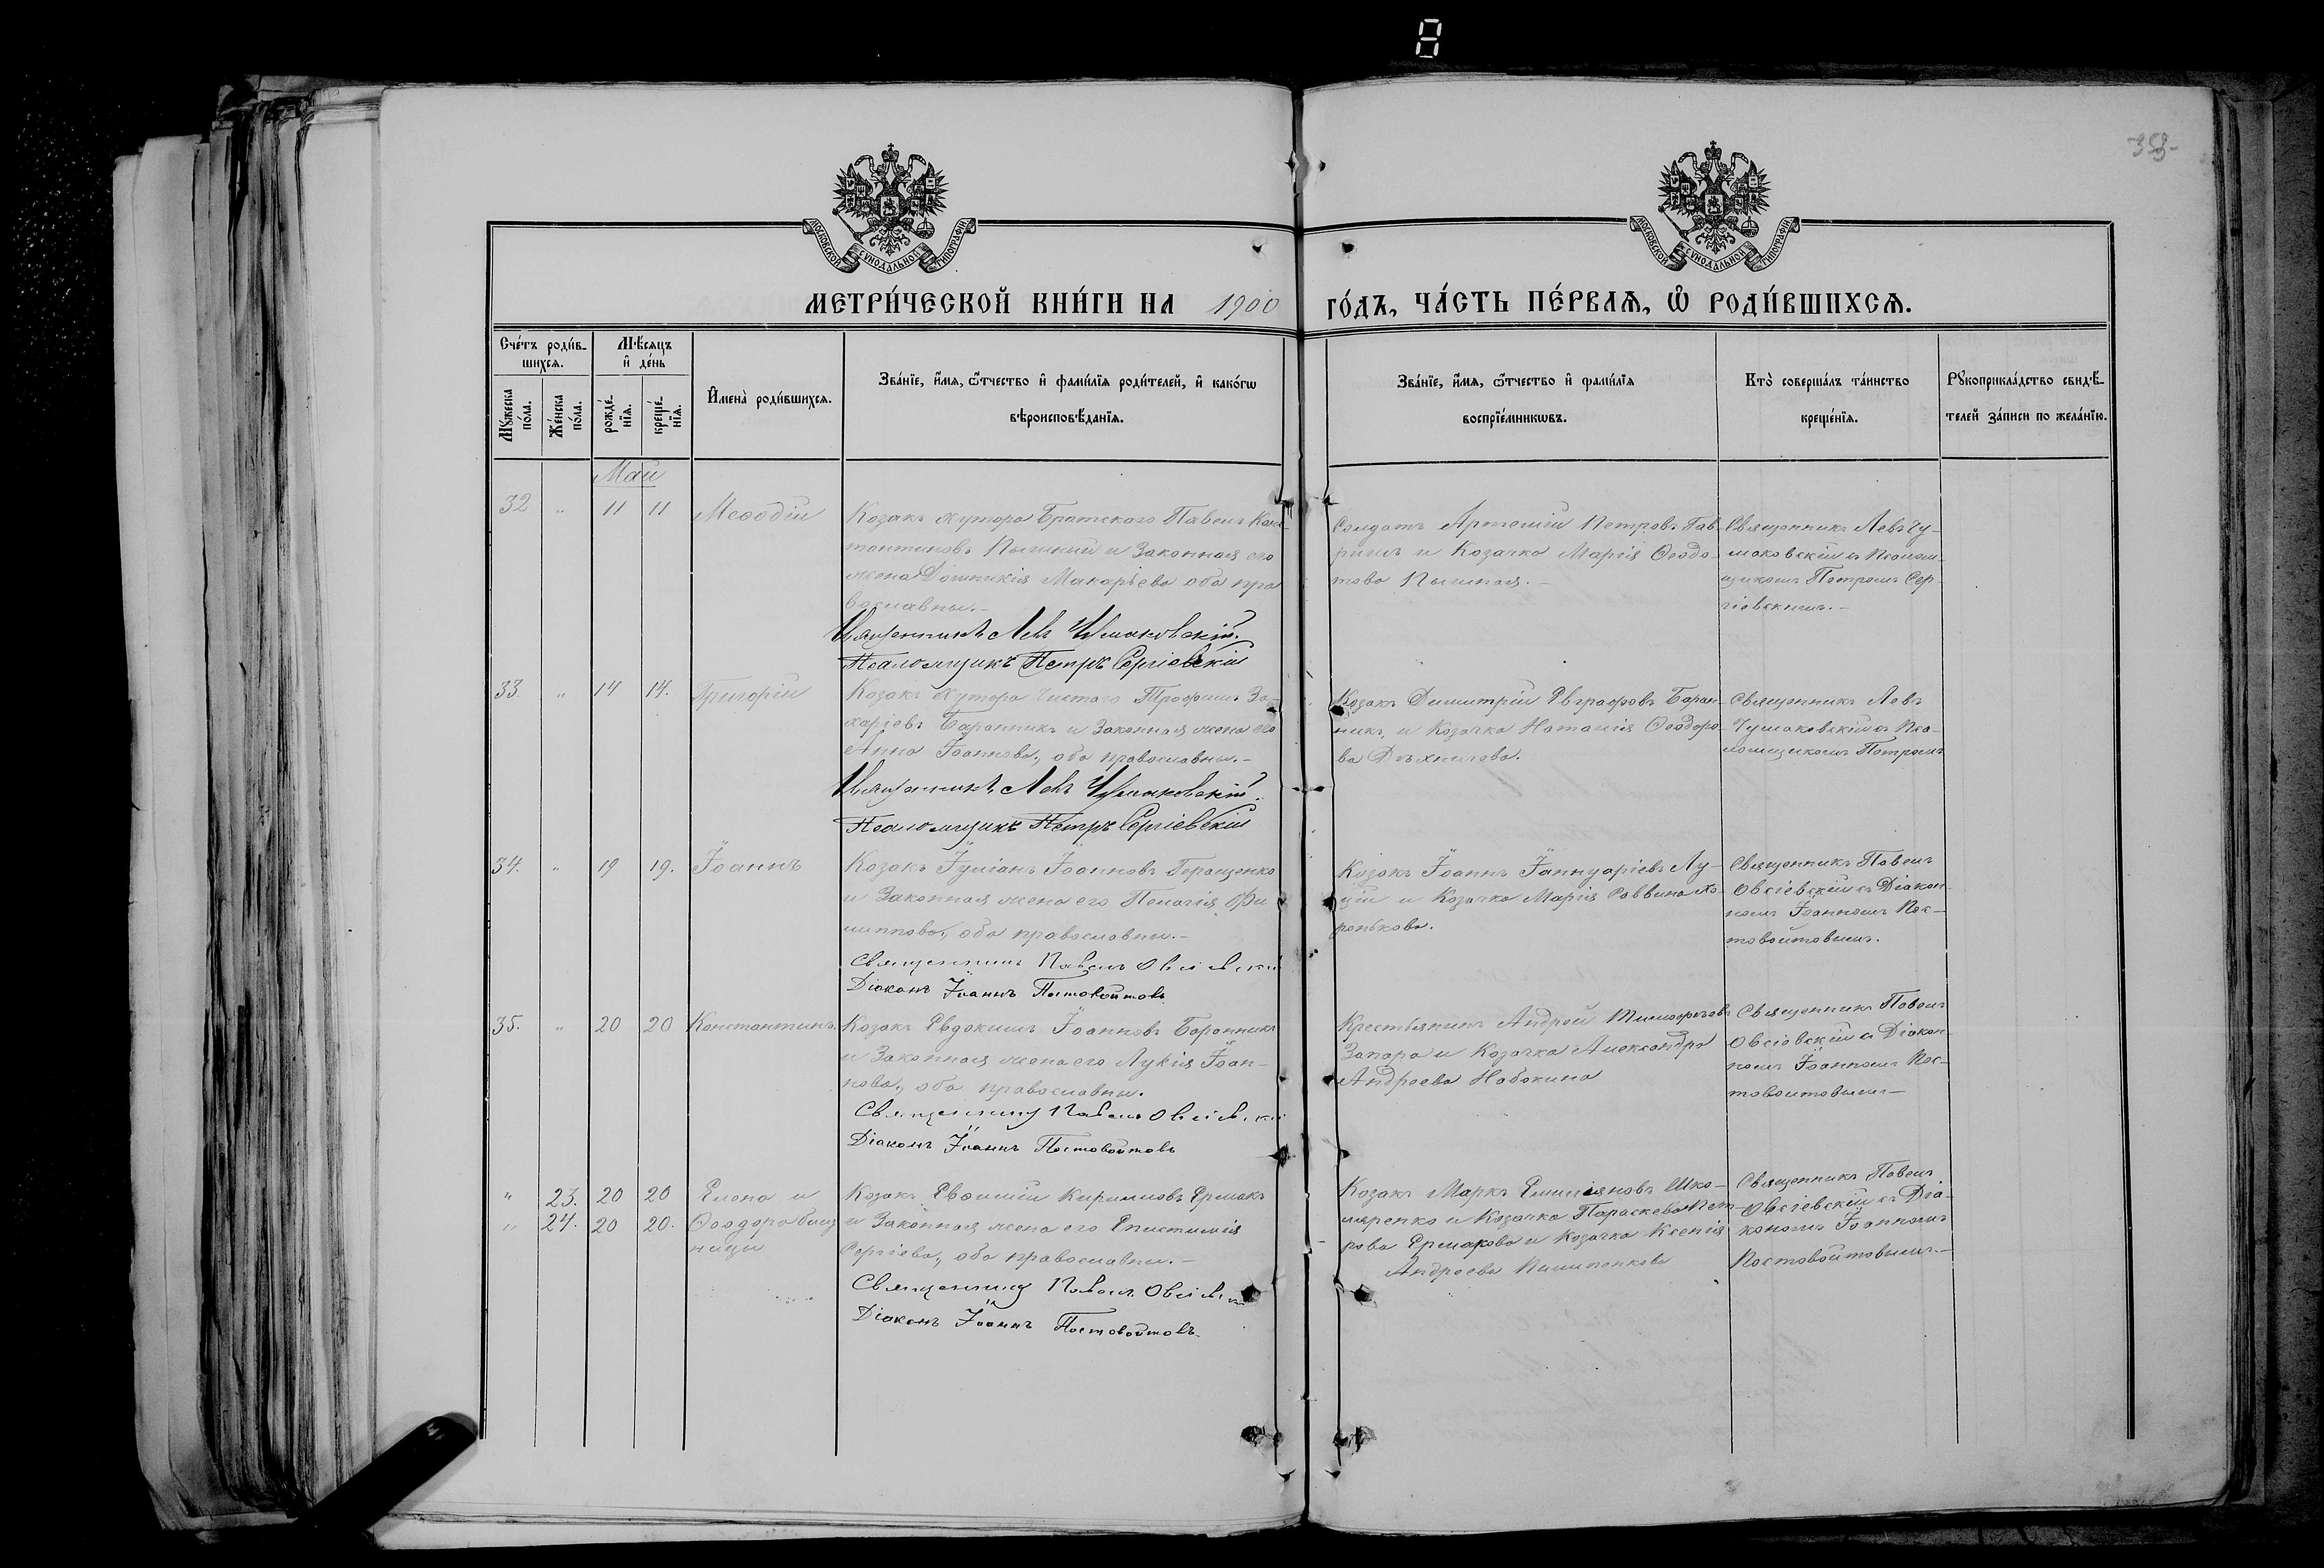 8
353
МОСКОВСКОЙ СѴНОДАЛЬНОЙ ТИПОГРАФІИ
МОСКОВСКОЙ СѴНОДАЛЬНОЙ ТИПОГРАФІИ
МЕТРИ́ЧЕСКОЙ КНИ́ГИ НА 1900 ГО́ДЪ, ЧА́СТЬ ПЕ́РВАЯ, Ѽ РОДИ́ВШИХСЯ.
Сче́тъ роди́в-
шихся.
Мꙋ́жеска по́ла.
Же́нска по́ла.
Мѣ́сяцъ
и҆ де́нь
рожде́-
нїя.
креще́-
нїя.
И҆мена̀ роди́вшихся.
Зва́нїе, и҆́мя, ѻ҆́тчество и҆ фами́лїя роди́телей, и҆ како́гѡ
вѣроисповѣ́данїя.
Зва́нїе, и҆́мя, ѻ҆́тчество и҆ фами́лїя
воспрїе́мникѡвъ.
Кто̀ соверша́лъ та́инство
креще́нїя.
Рꙋкоприкла́дство свидѣ́-
телей за́писи по жела́нїю.
Май
32 " 11 11 Меѳодій
Козакъ хутора Братскаго Павелъ Кон-
стантиновъ Пышный и законная его
жена Домникія Макарьева оба пра
вославны.-
Священникъ Левъ Чумаковскій.
Псаломщикъ Петръ Сергіевскій
Солдатъ Артемій Петровъ Гав-
ришъ и Козачка Марія Ѳеодо-
това Пышная.-
Священникъ Левъ Чу-
маковскій съ Псалом-
щикомъ Петромъ Сер-
гіевскимъ.-
33. " 14 14. Григорій
Козакъ хутора Чистаго Трофимъ За-
харіевъ Баранникъ и законная жена его
Анна Іоаннова, оба православны.-
Священникъ Левъ Чумаковскій.
Псаломщикъ Петръ Сергіевскій
Козакъ Димитрій Евграфовъ Баран-
никъ, и Козачка Наталія Ѳеодоро-
ва
Священникъ Левъ
Чумаковскій съ Пса-
ломщикомъ Петромъ
34. " 19 19. Іоаннъ
Козакъ Іуліанъ Іоанновъ Геращенко
и законная жена его Пелагія Фи-
липпова, оба православны.-
Священникъ Павелъ Овсіевскій
Діаконъ Іоаннъ Постовойтовъ
Козакъ Іоаннъ Іаннуаріевъ Лу-
цій и Козачка Марія Саввина Хо-
ронькова.
Священникъ Павелъ
Овсіевскій съ Діакон-
номъ Іоанномъ Пос-
товойтовымъ.
35. " 20 20 Константинъ.
Козакъ Евдокимъ Іоанновъ Баранникъ
и законная жена его Лукія Іоан-
нова, оба православны.
Священникъ Павелъ Овсіевскій
Діаконъ Іоаннъ Постовойтовъ
Крестьянинъ Андрей Тимофеевъ
Запара и Козачка Александра
Андреева Набокина
Священникъ Павелъ
Овсіевскій съ Діакон-
номъ Іоанномъ Пос-
товойтовымъ-
" 23. 20 20 Елена и
" 24. 20 20. Ѳеодора близ
ницы
Козакъ Евѳимій Кирилловъ Ермакъ
и законная жена его Епистимія
Сергіева, оба православны.-
Священникъ Павелъ Овсіевскій
Діаконъ Іоаннъ Постовойтовъ.
Козакъ Маркъ Емиліяновъ Шко-
ляренко и Козачка Параскева Пет-
рова Ермакова и Козачка Ксенія
Андреева Пилипенкова
Священникъ Павелъ
Овсіевскій съ Діа-
кономъ Іоанномъ
Постовойтовымъ.-